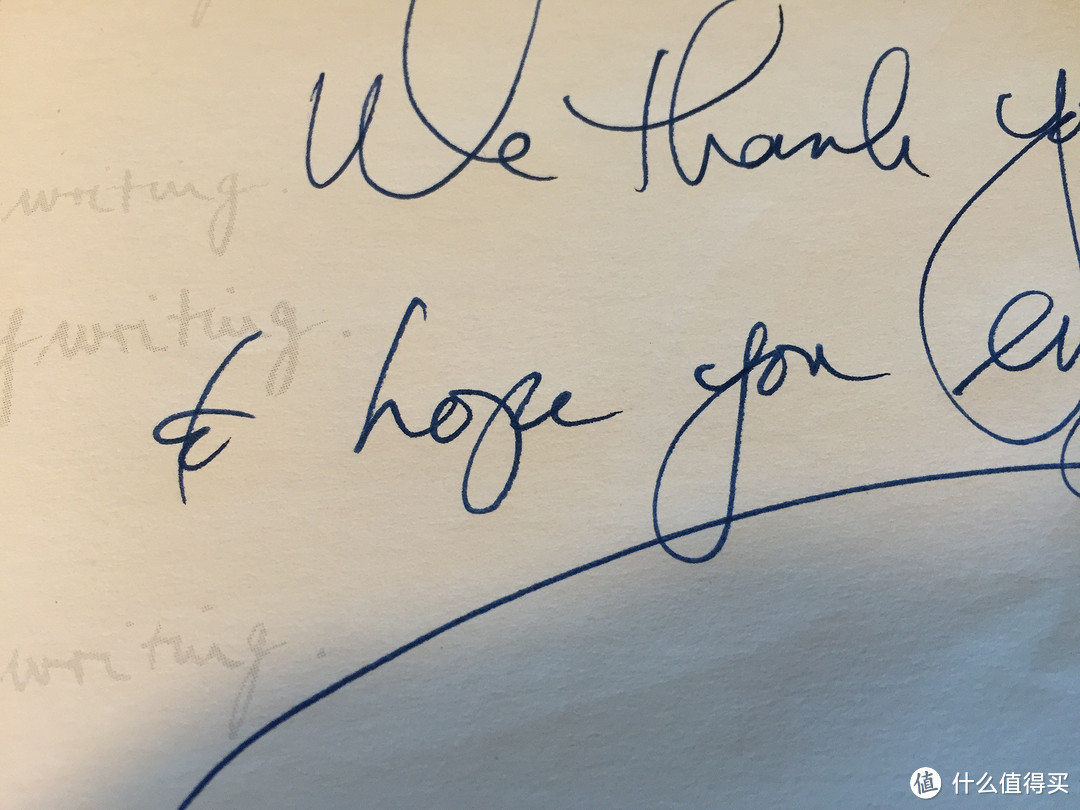 We thank yo
writing.
f writing.
& hope you en
writing.
值 什么值得买